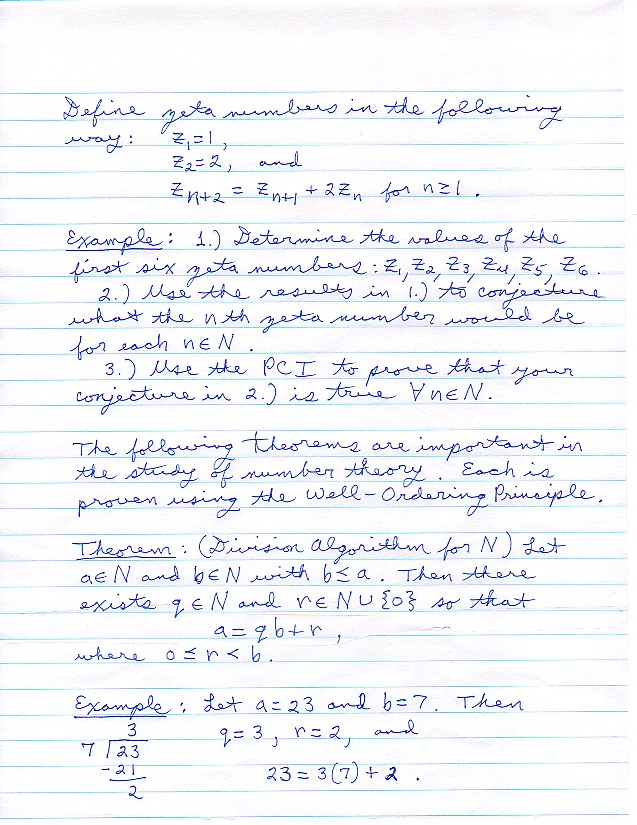 Define zeta numbers in the following
way: Z₁=1,
Z₂=2, and
Zₙ₊₂ = Zₙ₊₁ + 2Zₙ for n≥1.
Example: 1.) Determine the values of the
first six zeta numbers: Z₁, Z₂, Z₃, Z₄, Z₅, Z₆.
2.) Use the results in 1.) to conjecture
what the nth zeta number would be
for each n∈N.
3.) Use the PCI to prove that your
conjecture in 2.) is true ∀n∈N.
The following theorems are important in
the study of number theory. Each is
proven using the Well-Ordering Principle.
Theorem: (Division Algorithm for N) Let
a∈N and b∈N with b≤a. Then there
exists q∈N and r∈N∪{0} so that
a=qb+r,
where 0≤r<b.
Example: Let a=23 and b=7. Then
3 q=3, r=2, and
7 23
-21 23=3(7)+2.
2